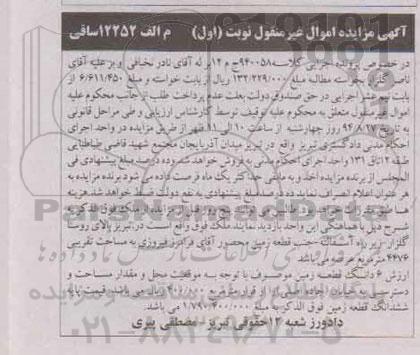 آگهی مزایده اموال غیرمنقول نوبت (اول) م الف ۱۲۲۵۲ساقی
در خصوص پرونده اجرایی کلاسه ۹۴۰۰۵۸ج م ۱۲ برله آقای نادر نخبافی و بر علیه آقای
ناصر بخواسته مطالبه مبلغ ۱۳۲/۲۲۹/۰۰۰ ریال از بابت خواسته و مبلغ ۶/۶۱۱/۴۵۰ از
بابت نیم عشر اجرایی در حق صندوق دولت بعلت عدم پرداخت طلب از جانب محکوم علیه
اموال غیرمنقول متعلق به محکوم علیه توقیف توسط کارشناس ارزیابی و طی مراحل قانونی
به تاریخ ۹۴/۸/۲۷ روز چهارشنبه از ساعت ۱۰ الی ۱۱ ظهر از طریق مزایده در واحد اجرای
احکام مدنی دادگستری تبریز واقع در تبریز میدان آذربایجان مجتمع شهید قاضی طباطبایی
طبقه ۲ اتاق ۱۳۱ واحد اجرای احکام مدنی به فروش خواهد شد ده درصد مبلغ پیشنهادی فی
المجلس از برنده مزایده اخذ و به مابقی حداکثر یک ماه فرصت داده می شود برنده مزایده به
هر عنوان اعلام انصراف نماید ده درصد مبلغ پیشنهادی به نفع دولت ضبط خواهد شد هزینه
ها طبق مقررات خواهد بود طالبین می توانند پنج روز قبل از مزایده از ملک فوق الذکر به
شرح ذیل با هماهنگی این واحد بازدید نمایند ملک فوق واقع است در تبریز بالای روستا
گلزار جنب قطعه زمین محصور آقای فرامرز فیروزی به مساحت تقریبی
۴۴۷۶ مترمربع عرصه می باشد
ارزش ۶ دانگ قطعه زمین موصوف با توجه به موقعیت محل و مقدار مساحت و
دسترسی از قرار هر متر مربع ۴۰۰/۰۰۰ ریال می باشد قیمت پایه
ششدانگ قطعه زمین فوق الذکر به مبلغ ۱/۷۹۰/۴۰۰/۰۰۰ می باشد.
دادورز شعبه ۱۲ حقوقی تبریز - مصطفی پیری
پایگاه اطلاع رسانی
۰۲۱-۸۸۳۴۹۶۷۰-۵